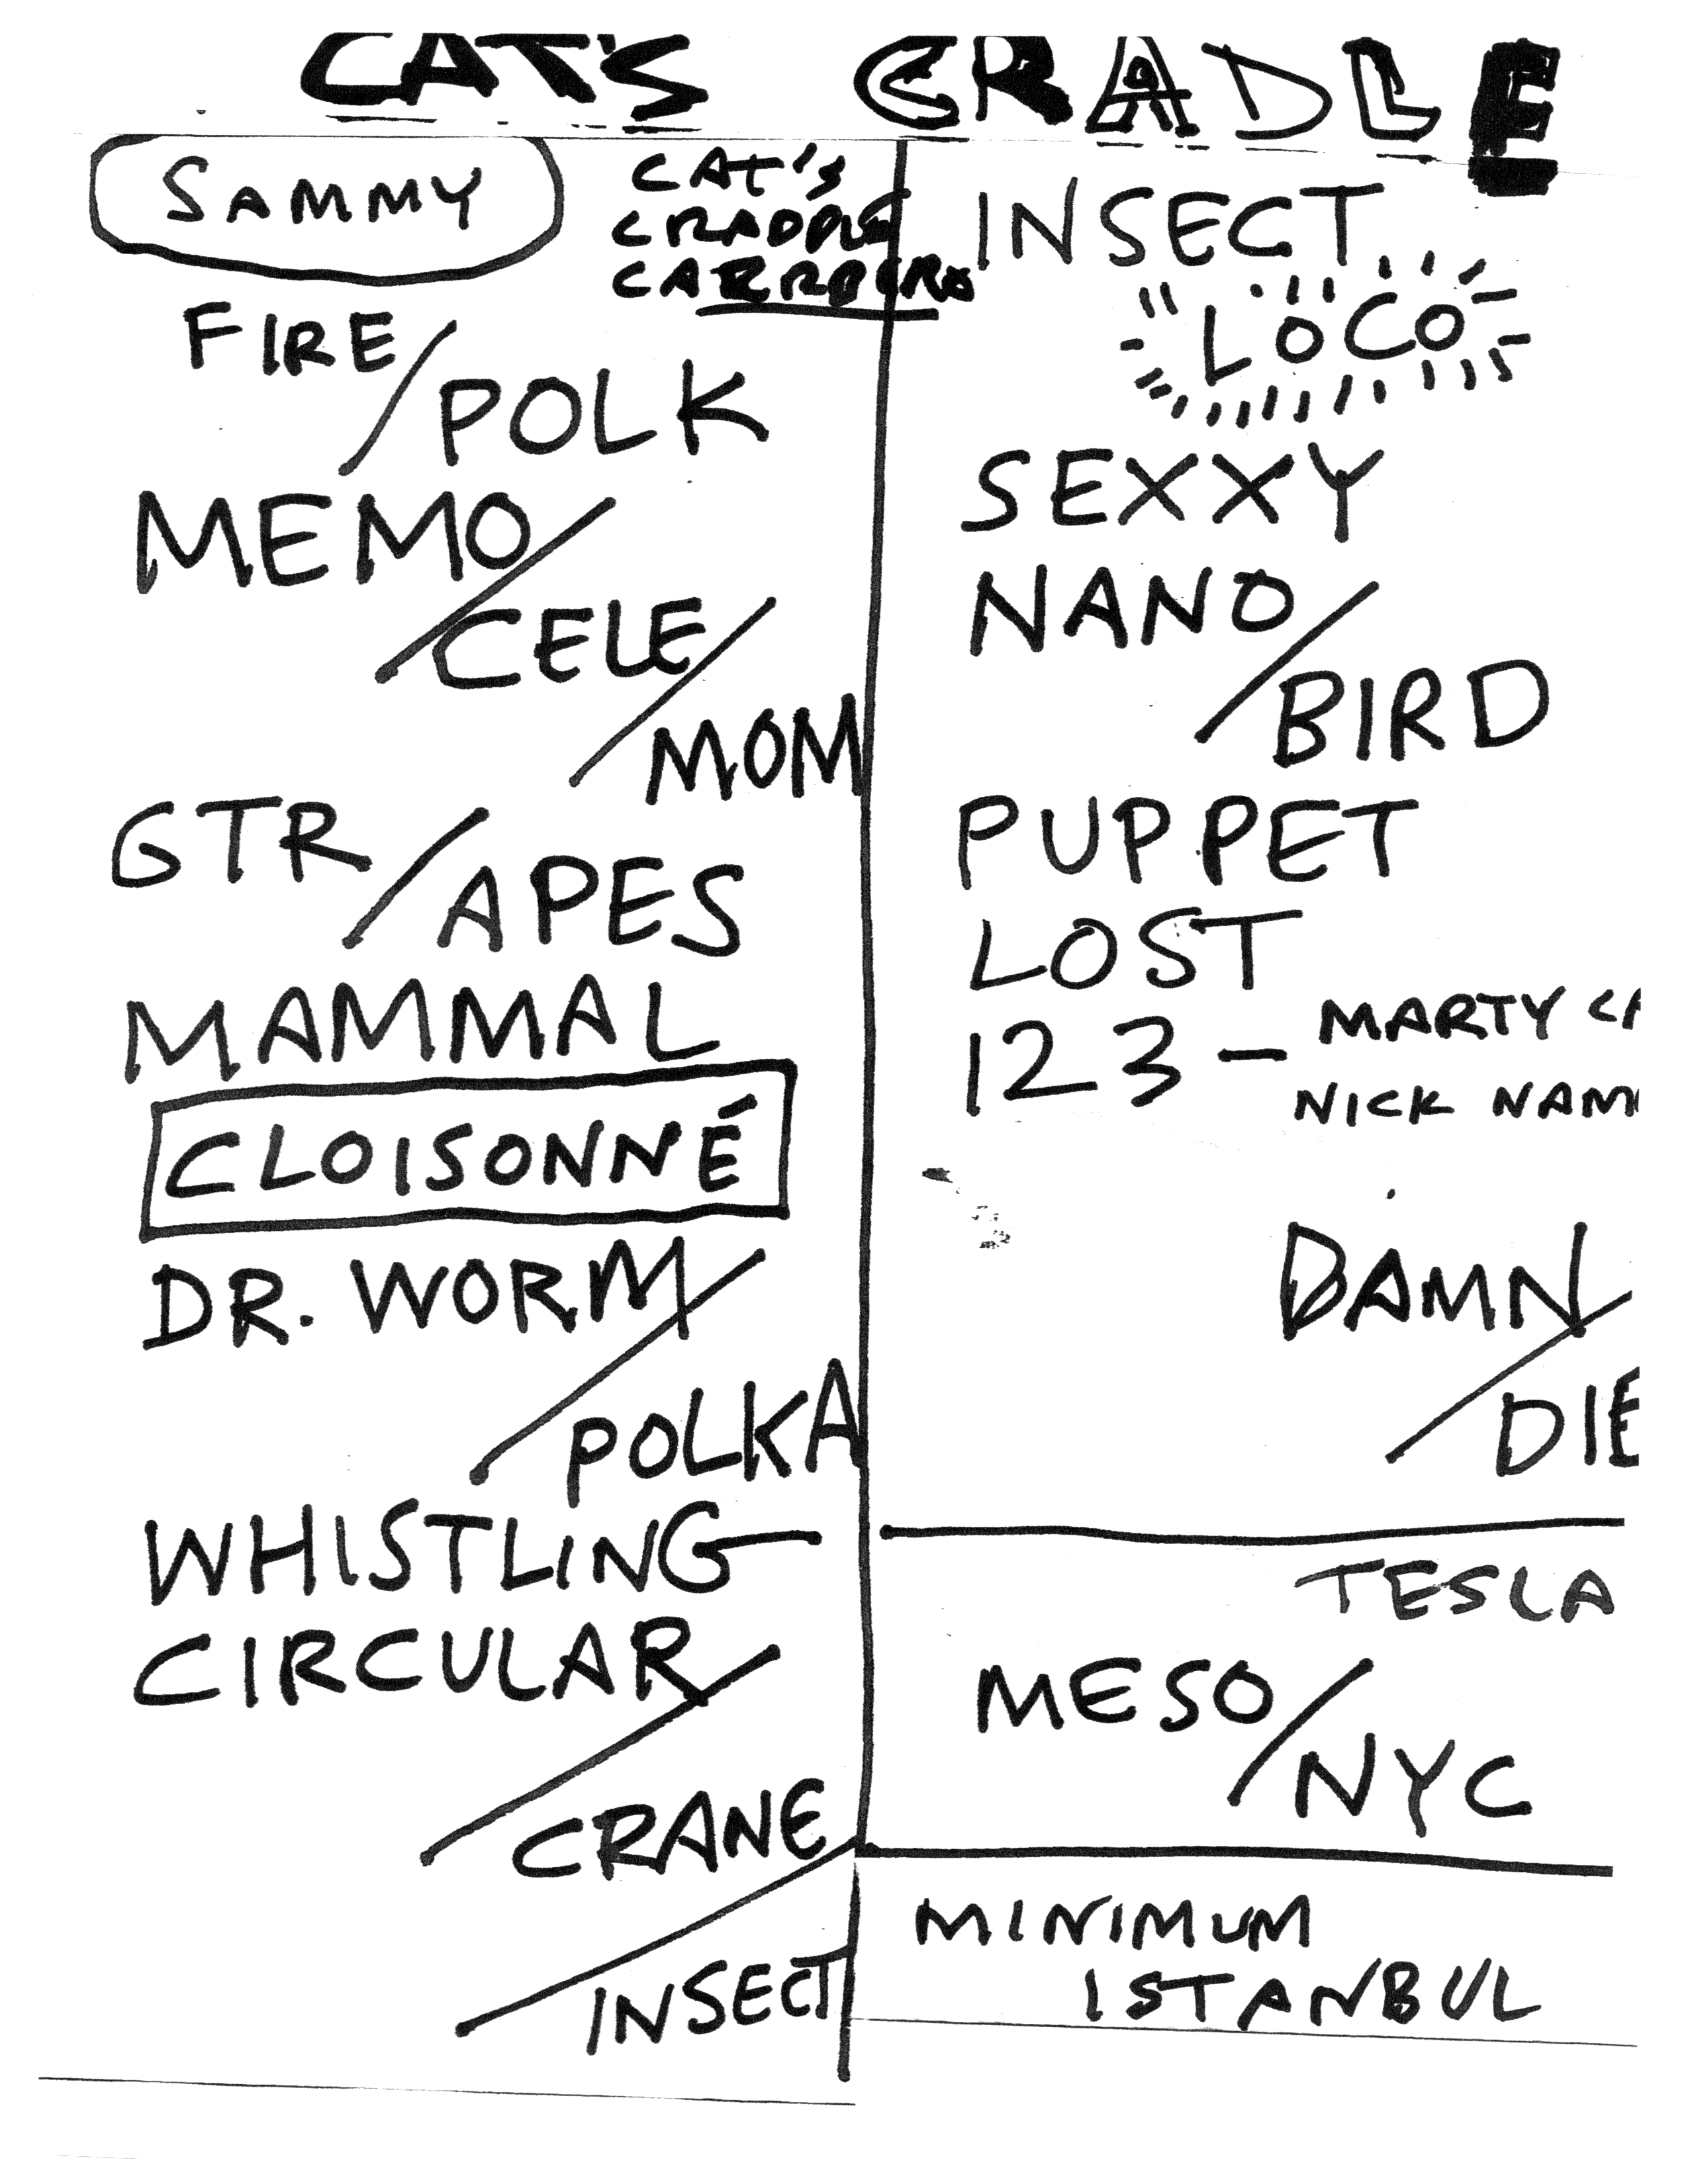 CAT'S CRADLE
SAMMY
CAT'S
CRADLE
CARRBORO
FIRE/
POLK
MEMO/
CELE/
MOM
GTR/
APES
MAMMAL
CLOISONNÉ
DR. WORM/
POLKA
WHISTLING
CIRCULAR/
CRANE/
INSECT
INSECT
"LOCO"
SEXXY
NANO/
BIRD
PUPPET
LOST
123 - MARTY
NICK
DAMN/
DIE
TESLA
MESO/
NYC
MINIMUM
ISTANBUL